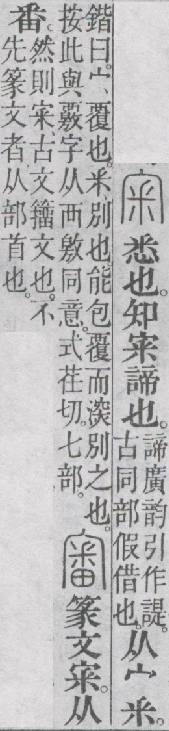 宷悉也。知宷諦也。
諦廣韵引作諟。
古同部假借也。
从宀釆。
鍇曰。宀、覆也。釆、別也能包覆而㴱別之也。
按此與覈字从襾敫同意。式荏切。七部。
審篆文宷。从
番。
然則宷、古文籒文也。不
先篆文者从部首也。